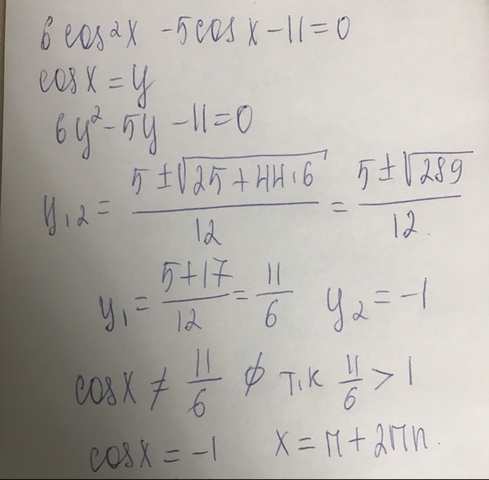 6 cos²x - 5cos x - 11 = 0
cos x = y
6y² - 5y - 11 = 0
y₁,₂ = (5 ± √(25 + 44·6))/12 = (5 ± √289)/12.
y₁ = (5 + 17)/12 = 11/6 y₂ = -1
cos x ≠ 11/6 ∅ т.к 11/6 > 1
cos x = -1 x = π + 2πn.